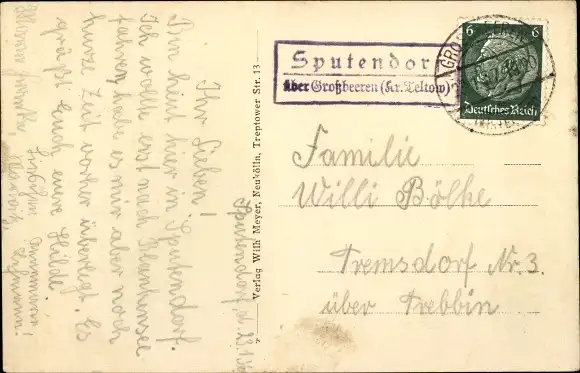 Sputendorf, d. 23.1.36
Ihr Lieben!
Bin heut hier in Sputendorf.
Ich wollte erst nach Blankensee
fahren, habe es mir aber noch
kurze Zeit vorher überlegt. Es
grüßt Euch eure Hilde
Verlag Wilh Meyer, Neukölln, Treptower Str. 13
Sputendor
über Großbeeren (Kr. Teltow)
6 6
Deutsches Reich
Familie
Willi Bölke
Tremsdorf Nr. 3
über Trebbin